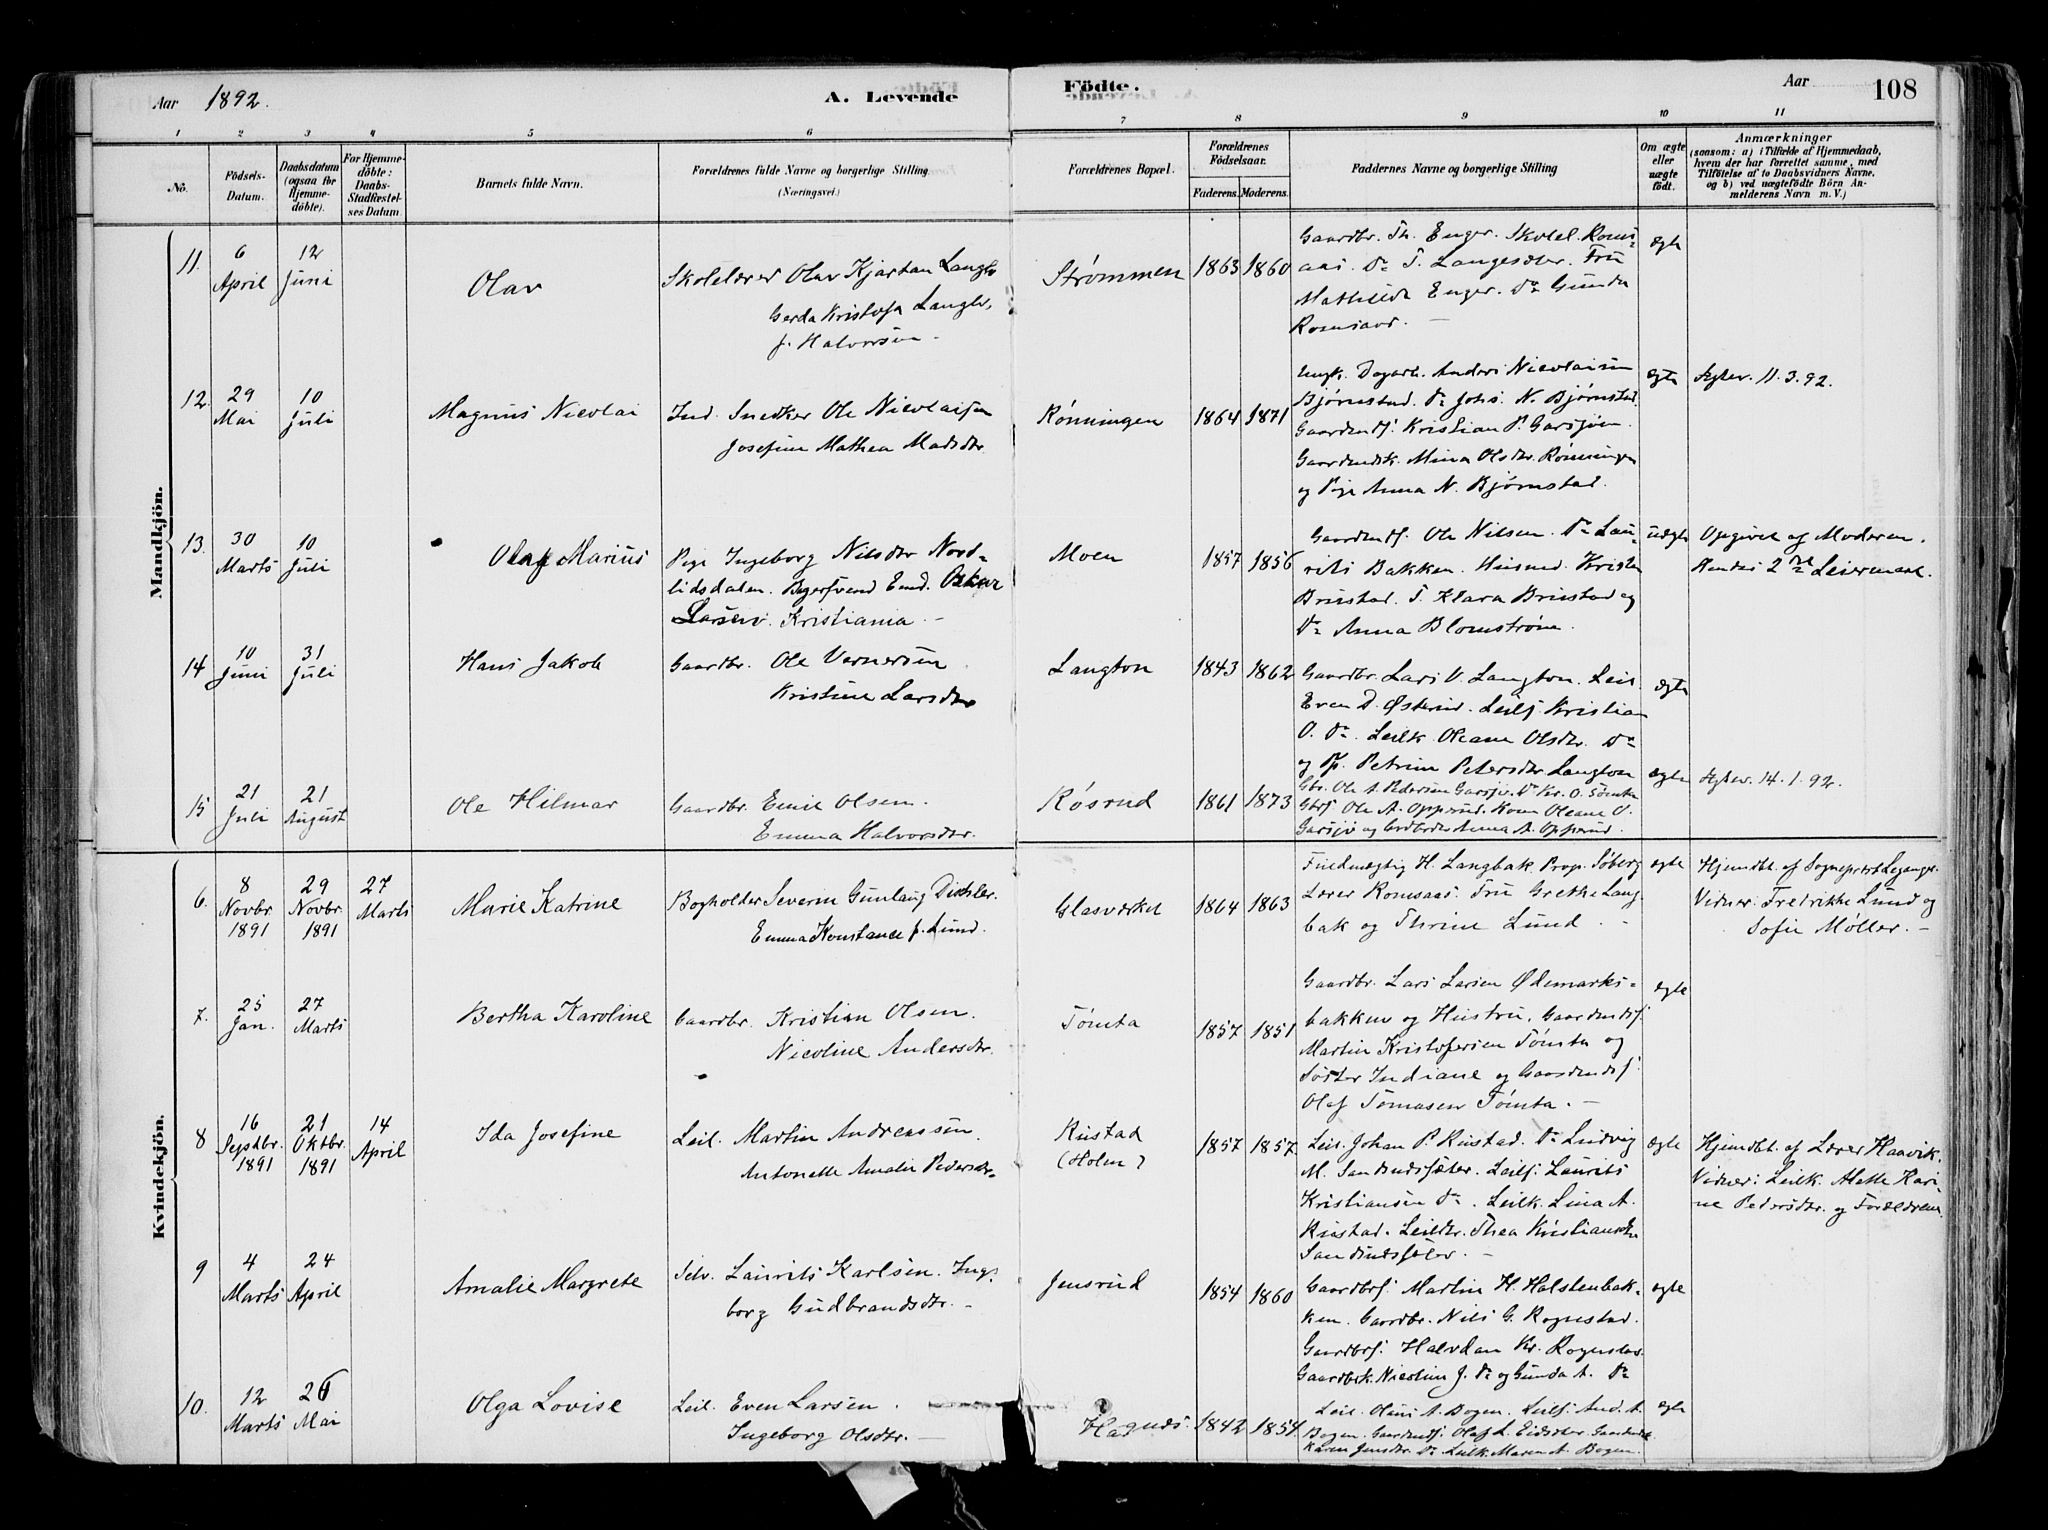 Aar 1892. A. Levende Födte. Aar 108
1 2 3 4 5 6 7 8 9 10 11
No.
Födsels-Datum.
Daabsdatum (ogsaa för Hjemme-döbte).
For Hjemme-döbte: Daabs-Stadfæstel-ses Datum
Barnets fulde Navn.
Forældrenes fulde Navne og borgerlige Stilling (Næringsvei.)
Forældrenes Bopæl.
Forældrenes Födselsaar.
Faderens. Moderens.
Faddernes Navne og borgerlige Stilling
Om ægte eller uægte födt.
Anmærkninger
(saasom: a) i Tilfælde af Hjemmedaab,
hvem der har forrettet samme, med
Tilföielse af to Daabsvidners Navne,
og b) ved uægtefödte Börn An-
melderens Navn m. V.)
Mandkjön.
11. 6 April 12 Juni Olav
Skolelærer Olav Kjartan Langlo
Gerda Kristofa Langlo,
f. Halvorsen.
Strømmen 1863 1860
Gaardbr. Th. Enger. Skolel. Roms-
aas. Do T. Langesæter. Fru
Mathilde Enger. Do Gunda
Romsaas. ægte
12. 29 Mai 10 Juli Magnus Nicolai
Ind. Snedker Ole Nicolaisen
Josefine Mathea Madsdtr
Rønningen 1864 1871
Ungk. Dagarb. Anders Nicolaisen
Bjørnstad. Do Johs. N. Bjørnstad.
Gaardmdsf. Kristian P. Garsjøen.
Gaardmdsk. Mina Olsdtr. Rønningen
og Pige Anna N. Bjørnstad.
ægte Ægtev. 11.3.92.
13. 30 Marts 10 Juli Olaf Marius
Pige Ingeborg Nilsdtr Nord-
lidsdalen. Bagersvend Emd. Oskar
Larsen. Kristiania.
Moen 1857 1856
Gaardmdsf. Ole Nilsen. Do Lau-
rits Bakken. Husmd. Kristen
Brustad. T. Klara Brustad og
Do Anna Blomstrøm.
uægte Opgivet af Moderen.
Hendes 2det Leiermaal.
14 10 Juni 31 Juli Hans Jakob
Gaardbr. Ole Vernersen
Kristine Larsdtr
Langton 1843 1862
Gaardbr. Lars V. Langton. Leil.
Even D. Østerud. Leilf. Kristian
O. Do. Leilk. Oleane Olsdtr. Do
og Pi. Petrine Petersdtr Langton
ægte
15 21 Juli 21 August Ole Hilmar
Gaardbr. Emil Olsen.
Emma Halvorsdtr.
Røsrud 1861 1873
Gbr. Ole A. Pedersen Garsjø. Do Kr. O. Tømta
Gbrsf. Ole A. Opperud. Kone Oleane O.
Garsjø og Grdbrdtr Anna A. Opperud.
ægte Ægtev. 14.1.92.
Kvindekjön.
6. 8 Novbr. 1891 29 Novbr. 1891 27 Marts Marie Katrine
Bogholder Severin Gunlaug Dichler.
Emma Konstance f. Lund.
Glasværket 1864 1863
Fuldmægtig H. Langbak. Prop. Søberg
Lærer Romsaas. Fru Grethe Lang-
bak og Thrine Lund.
ægte Hjemdbt. af Sogneprest Leganger.
Vidner: Fredrikke Lund og
Sofie Møller.
7. 25 Jan. 27 Marts Bertha Karoline
Gaardbr. Kristian Olsen.
Nicoline Andersdtr.
Tømta 1857 1851
Gaardbr. Lars Larsen Ødemarks-
bakken og Hustru. Gaardmdsf.
Martin Kristofersen Tømta og
Søster Indiane og Gaardmdsf.
Olaf Tomasen Tømta.
ægte
8 16 Septbr. 1891 21 Oktbr. 1891 14 April Ida Josefine
Leil. Martin Andreassen.
Antonette Amalie Pedersdtr
Rustad (Holm) 1857 1857
Leil. Johan P. Rustad. Do Ludvig
M. Sandnedssæter. Leilf. Laurits
Kristiansen Do. Leilk. Lina A.
Rustad. Leildtr. Thea Kristiansdtr
Sandnedssæter.
ægte Hjemdbt. af Lærer Haavik.
Vidner: Leilk. Alette Kari-
ne Pedersdtr. og Forældrene.
9 4 Marts 24 April Amalie Margrete
Selv. Laurits Karlsen. Inge-
borg Gudbrandsdtr.
Jensrud 1854 1860
Gaardbrsf. Martin H. Halstenbak-
ken. Gaardbr. Nils G. Rognstad.
Gaardbrsf. Halvdan Kr. Rognstad.
Gaardbk. Nicoline J. Do og Gunda A. Do
ægte
10. 12 Marts 26 Mai Olga Lovise
Leil. Even Larsen.
Ingeborg Olsdtr.
Hagnæs. 1842 1854
Leil. Hans A. Bogen. Leilf. And. A.
Bogen. Gaardmdsf. Olaf L. Eidsdter
Karen Jensdtr. Do Leilk. Maren A. Bogen.
ægte